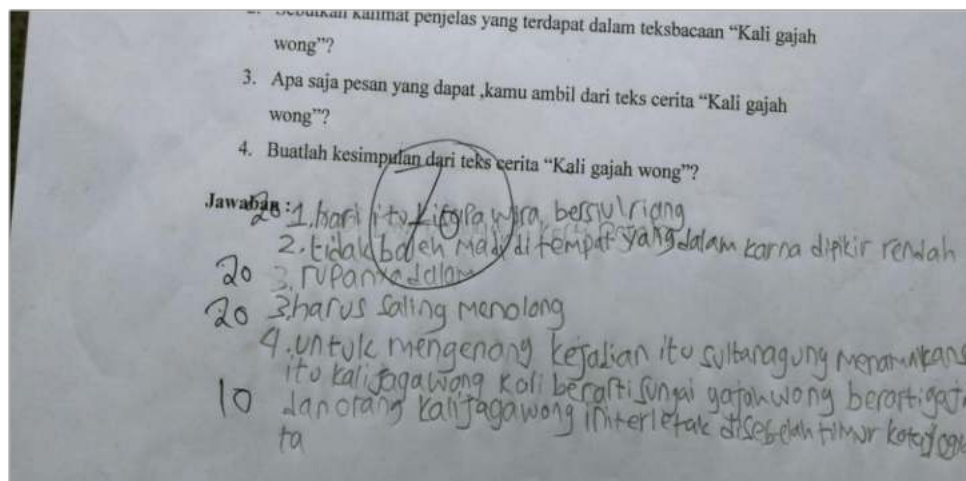 2. Sebutkan kalimat penjelas yang terdapat dalam teksbacaan “Kali gajah
wong”?
3. Apa saja pesan yang dapat ,kamu ambil dari teks cerita “Kali gajah
wong”?
4. Buatlah kesimpulan dari teks cerita “Kali gajah wong”?
Jawaban :
20 1. hari itu ki wira bersiul riang
2. tidak boleh di tempat yang dalam karna dipikir rendah
20 3. rupanya dalam
20 3. harus saling menolong
4. untuk mengenang kejadian itu sultanagung
itu kalijagawong kali berarti sungai gajahwong berarti
10 dan orang kalijagawong ini terletak disebelah timur kota
ta
70